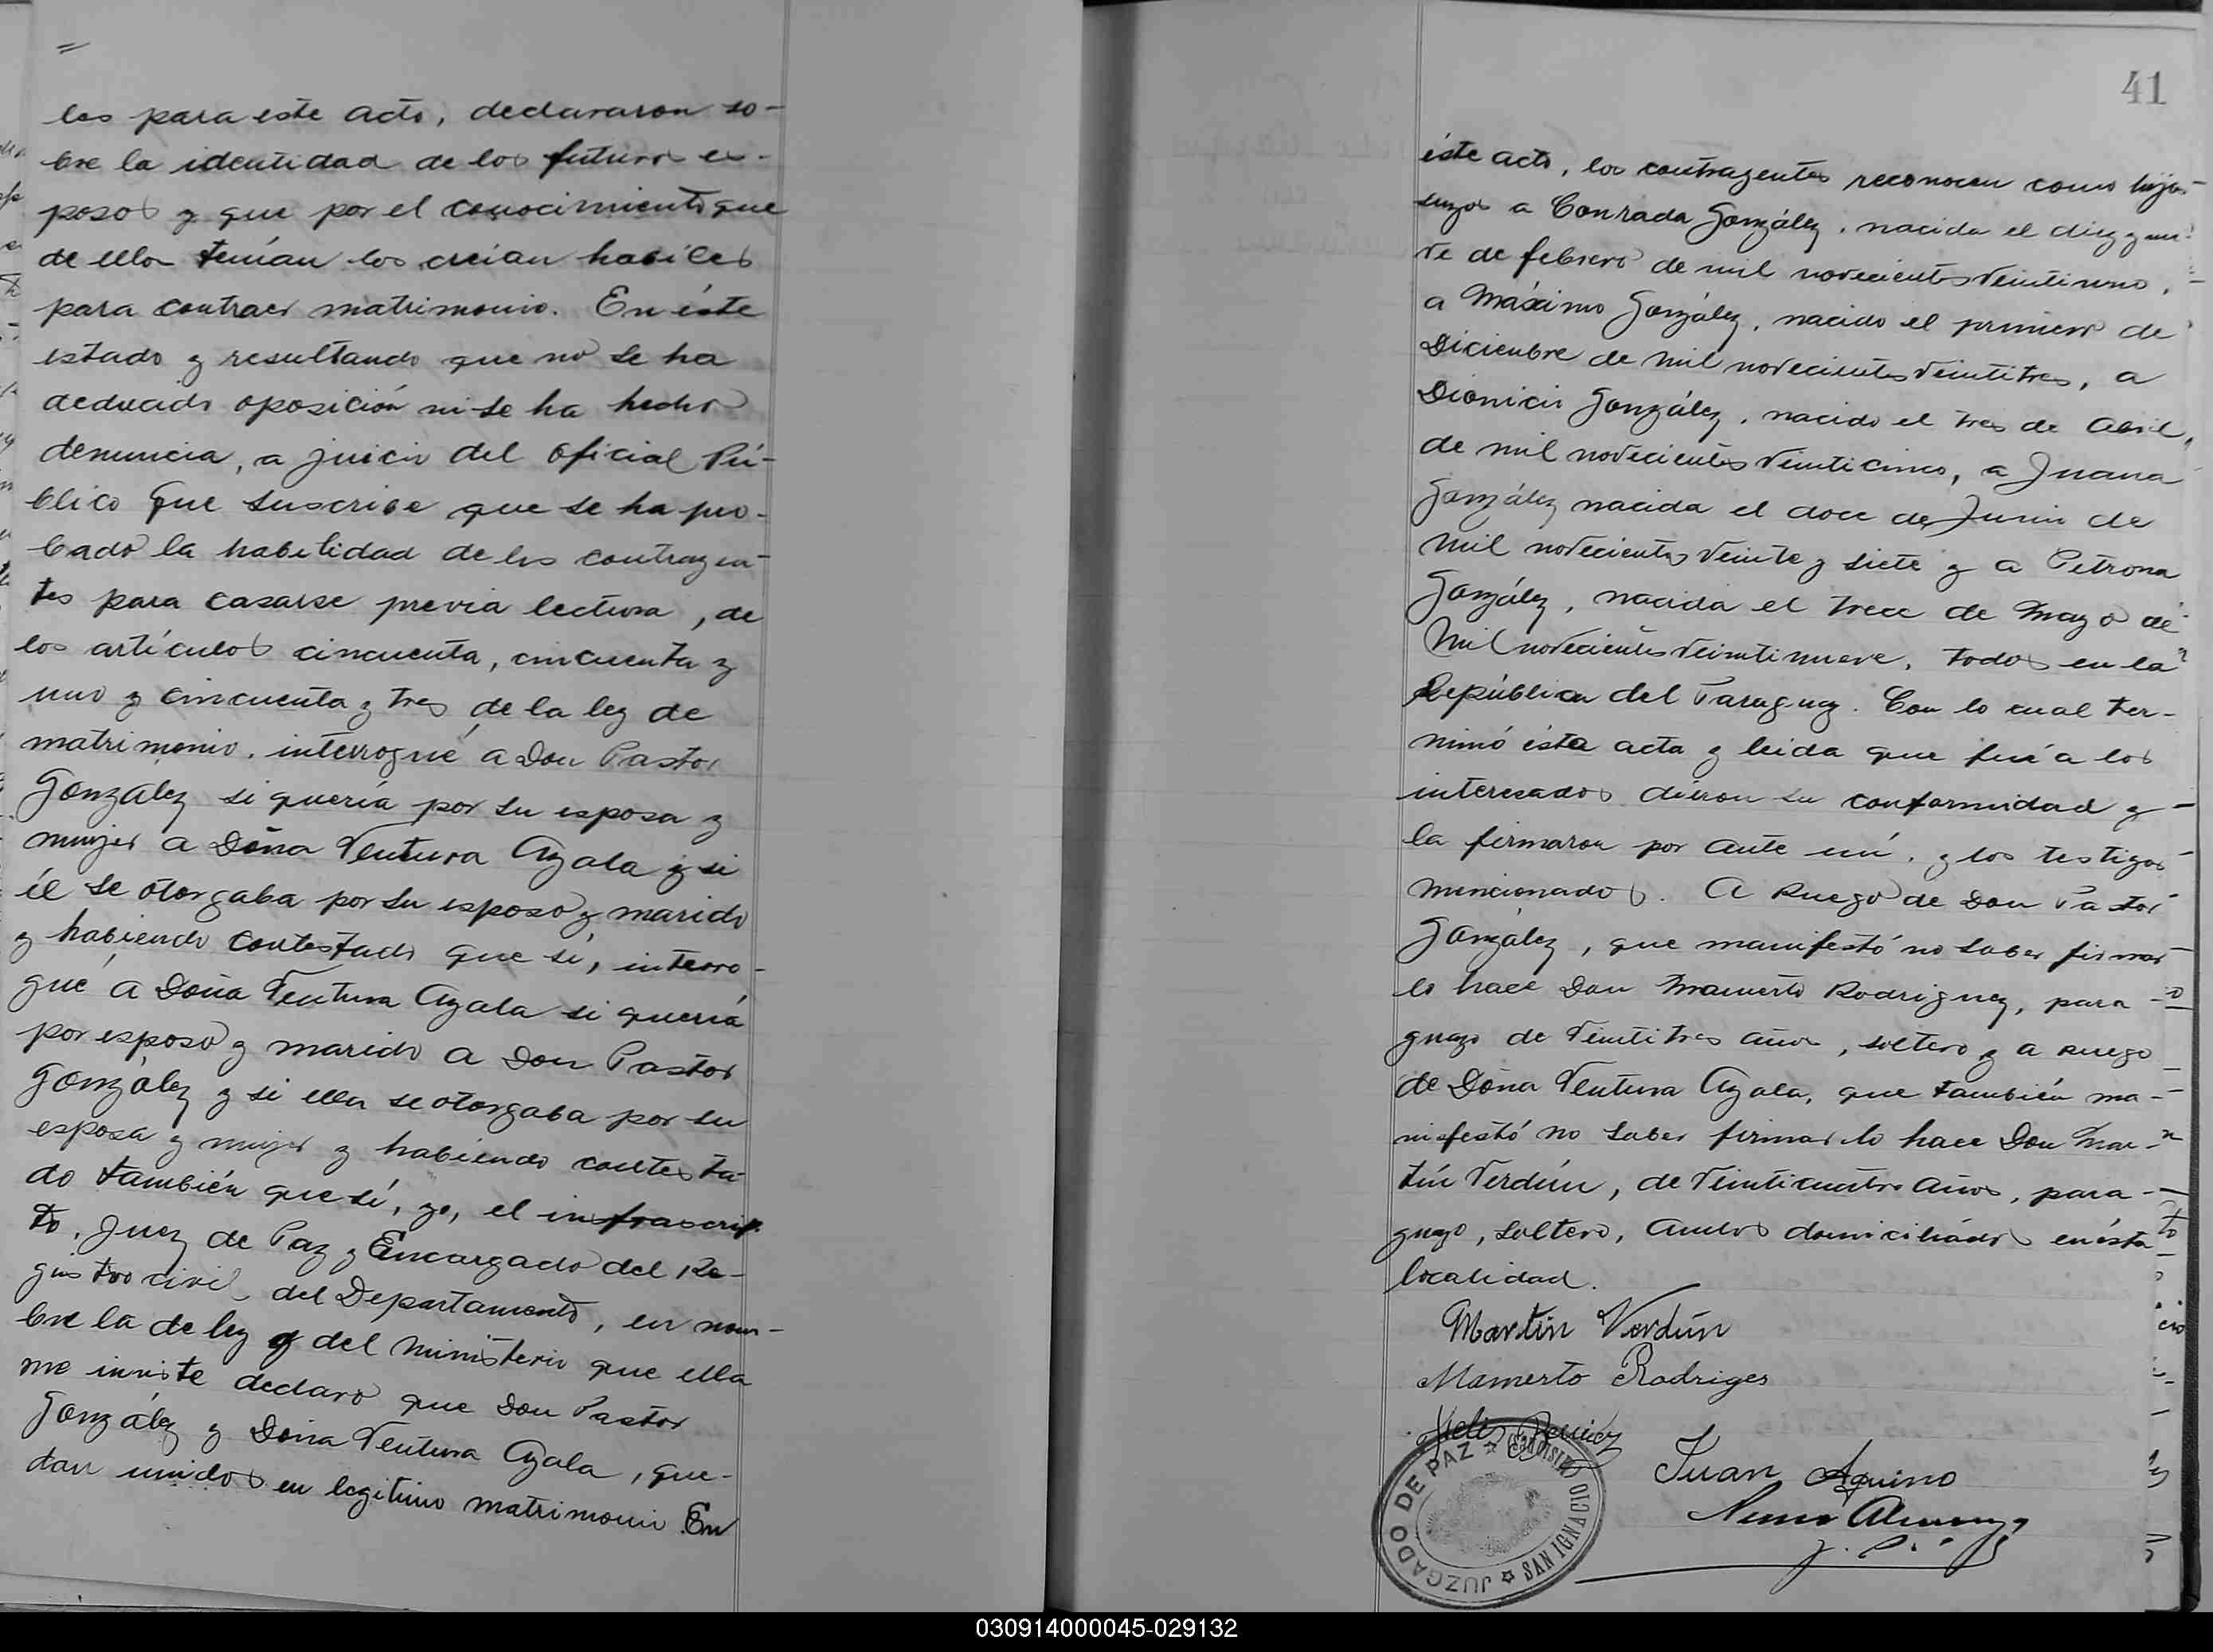 =
les para este acto, declararon so-
bre la identidad de los futuros es-
posos y que por el conocimiento que
de ellos tenían los creían habiles
para contraer matrimonio. En éste
estado y resultando que no se ha
deducido oposición ni se ha hecho
denuncia, a juicio del oficial Pú-
blico que suscribe que se ha pro-
bado la habilidad de los contrayen-
tes para casarse previa lectura, de
los artículos cincuenta, cincuenta y
uno y cincuenta y tres de la ley de
matrimonio, interrogué a Don Pastor
González si quería por su esposa y
mujer a Doña Ventura Ayala y si
él se otorgaba por su esposo y marido
y habiendo contestado que sí, interro-
gué a Doña Ventura Ayala si quería
por esposo y marido a Don Pastor
González y si ella se otorgaba por su
esposa y mujer y habiendo contesta-
do también que sí, yo, el infrascrip-
to, Juez de Paz y Encargado del Re-
gistro civil del Departamento, en nom-
bre la de ley y del ministerio que ella
me inviste declaro que Don Pastor
González y Doña Ventura Ayala, que-
dan unidos en legitimo matrimonio. En
41
éste acto, los contrayentes reconocen como hijos
suyos a Conrada González, nacida el diez y nue-
ve de febrero de mil novecientos veintiuno,
a Máximo González, nacido el primero de
Diciembre de mil novecientos veintitres, a
Dionicio González, nacido el tres de Abril,
de mil novecientos veinticinco, a Juana
González nacida el doce de Junio de
mil novecientos veinte y siete y a Petrona
González, nacida el trece de Mayo de
mil novecientos veintinueve, todos en la
República del Paraguay. Con lo cual ter-
minó ésta acta y leida que fué a los
interesados dieron su conformidad y
la firmaron por ante mí, y los testigos
mencionados. A Ruego de Don Pastor
González, que manifestó no saber firmar
lo hace Don Mamerto Rodriguez, para-
guayo de veintitres años, soltero y a ruego
de Doña Ventura Ayala, que también ma-
nifestó no saber firmar lo hace Don Mar-
tín Verdún, de veinticuatro años, para-
guayo, soltero, ambos domiciliados en ésta
localidad.
Martín Verdún
Mamerto Rodriges
Juan Aquino
JUZGADO DE PAZ ☆ SAN IGNACIO MISIONES ☆
030914000045-029132